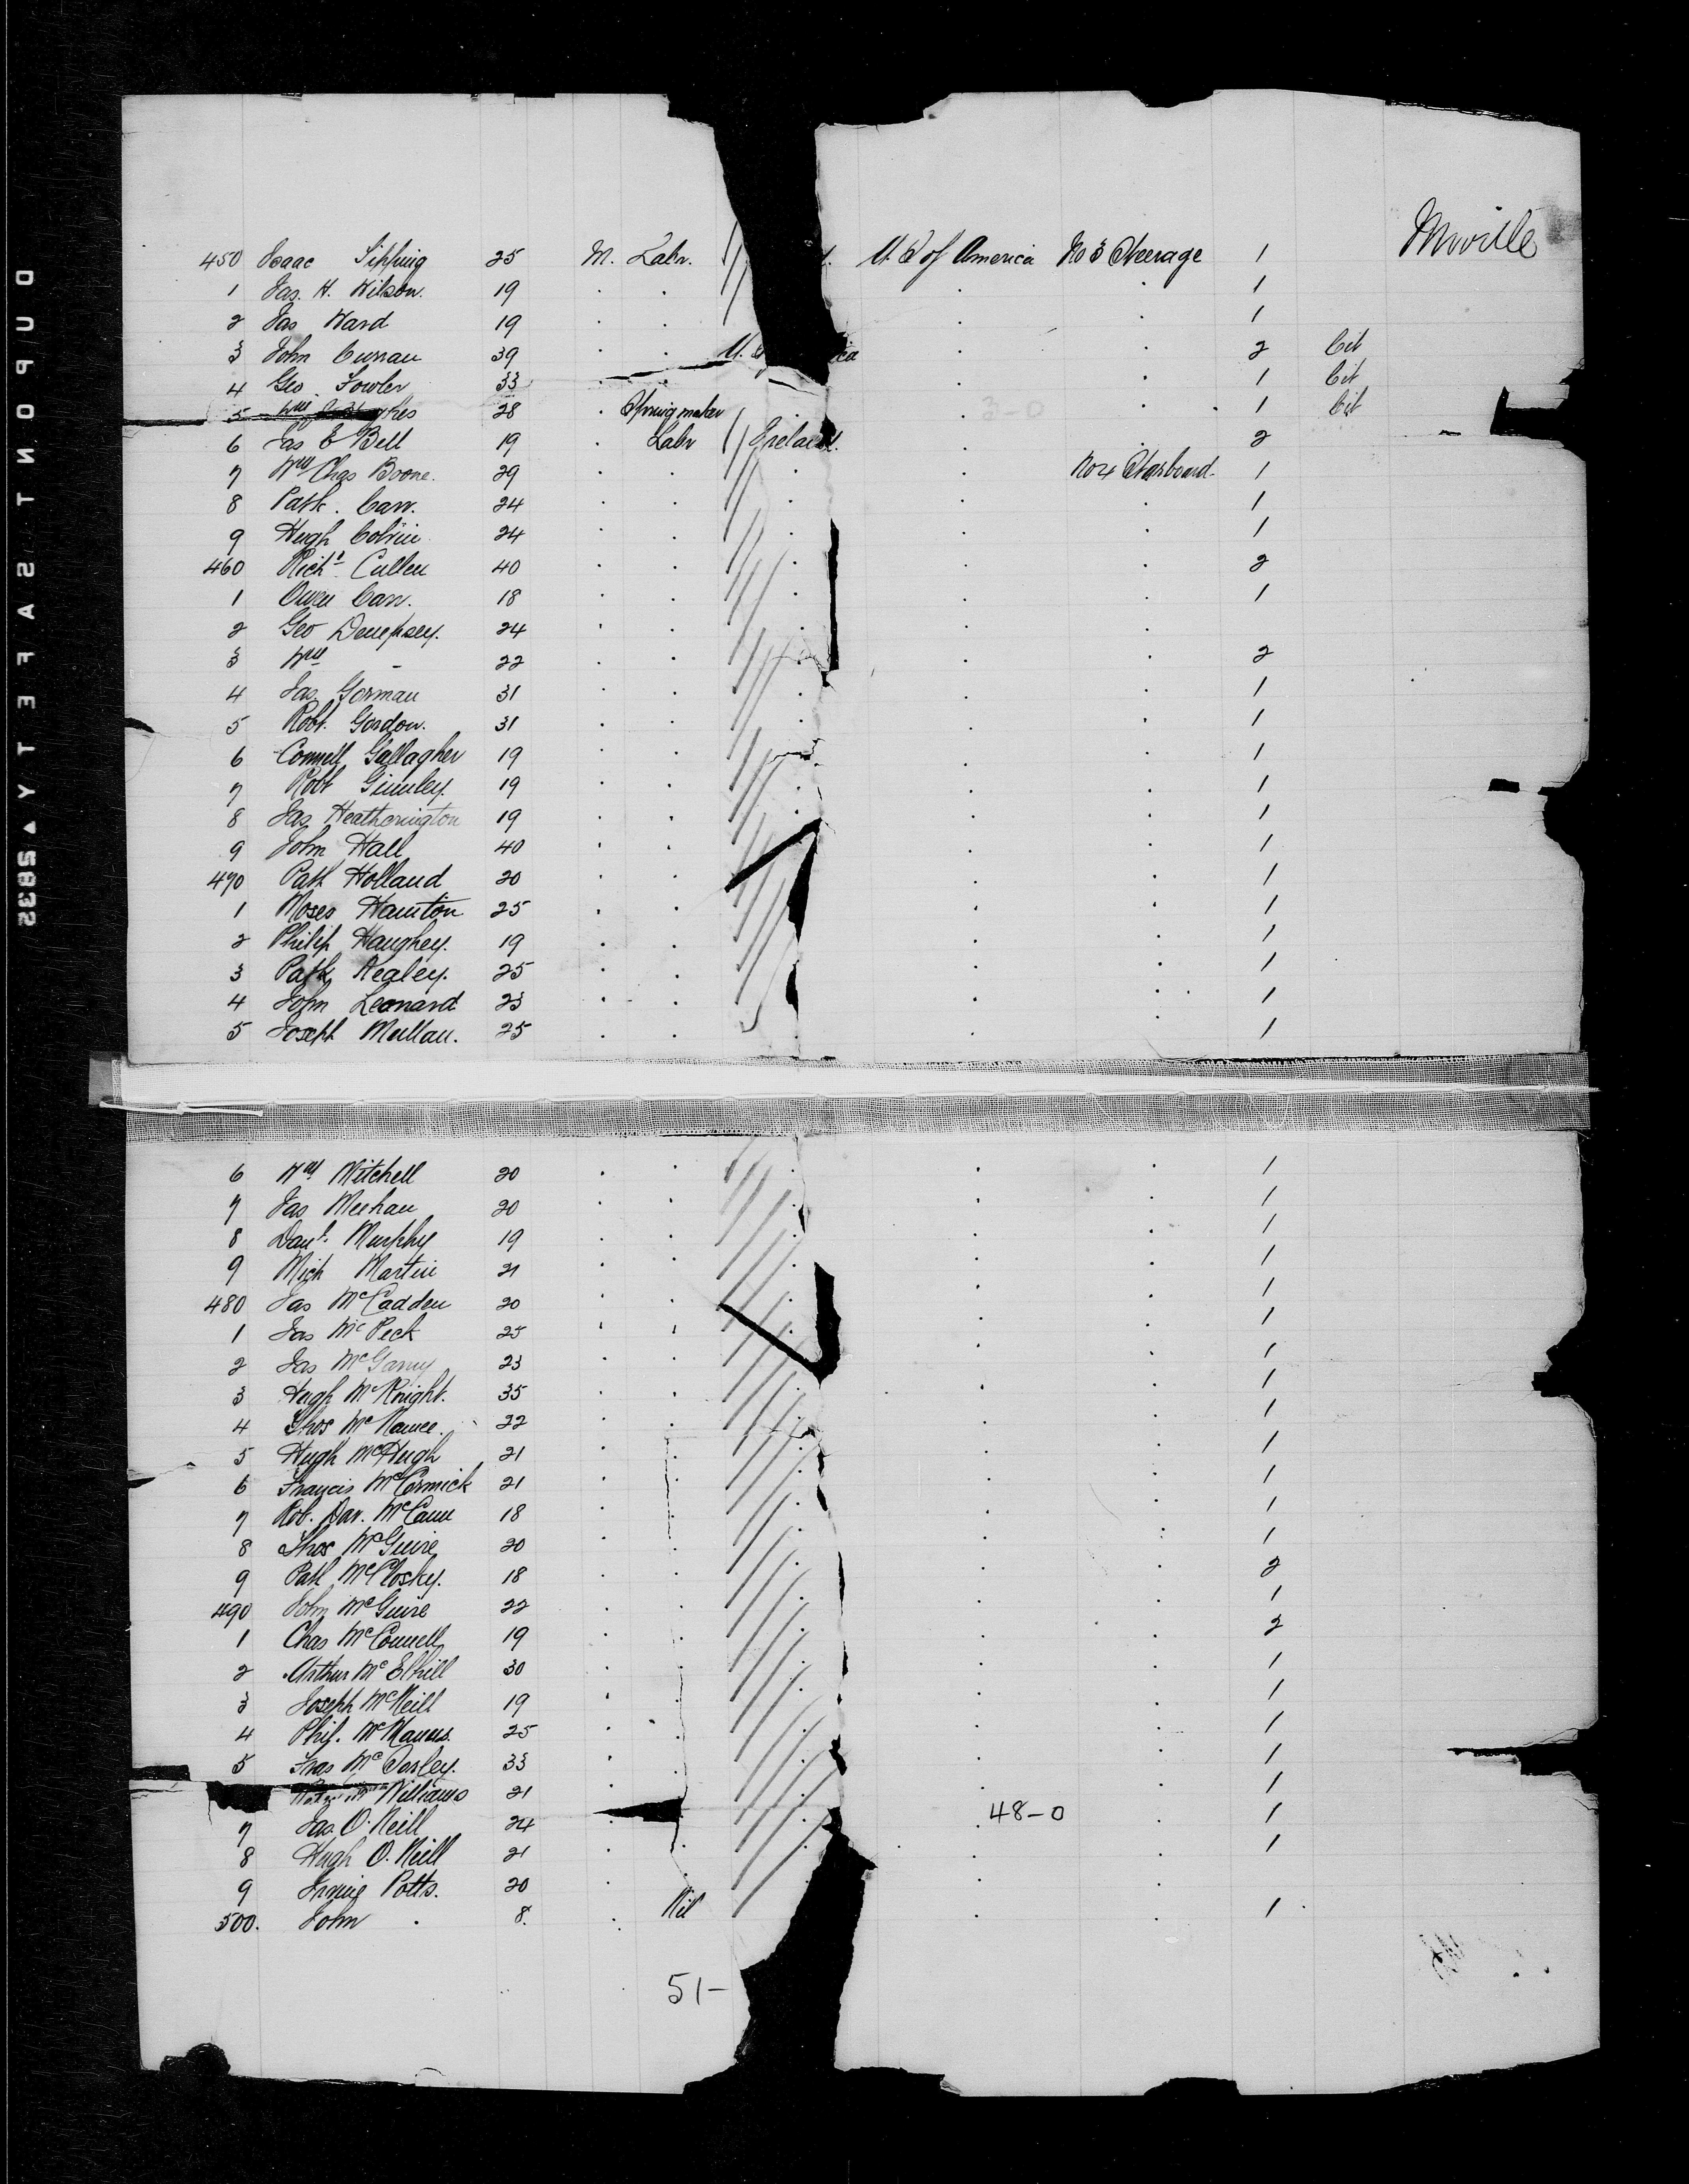 Mville
450 Isaac Sipping 25 M. Labr. U. S of America No 3 Steerage 1
1 Jas. H. Wilson. 19 . . . . 1
2 Jas Ward 19 . . . . 1
3 John Curran 39 . . U. S ica . . 2 Cit
4 Geo. Fowler 33 . . . . 1 Cit
5 Wm hes 28 . Spring maker . 3-0 . 1 Cit
6 Jas E Bell 19 . Labr Ireland. . . 2
7 Wm Chas Boone. 29 . . . . No 4 Starboard. 1
8 Patk. Carr. 24 . . . . . 1
9 Hugh Colvin 24 . . . . . 1
460 Richd. Cullen 40 . . . . . 2
1 Owen Carr. 18 . . . . . 1
2 Geo Dempsey. 24 . . . . .
3 Wm - 22 . . . . . 2
4 Jas. Gorman 31 . . . . . 1
5 Robt. Gordon. 31 . . . . . 1
6 Connell Gallagher 19 . . . . 1
7 Robt Gumley. 19 . . . . . 1
8 Jas. Heatherington 19 . . . . . 1
9 John Hall 40 . . . . 1
470 Patk Holland 20 . . . . 1
1 Moses Hamton 25 . . . . 1
2 Philip Haughey. 19 . . . . 1
3 Patk Kealey. 25 . . . . 1
4 John Leonard 23 . . . . 1
5 Joseph Mullan. 25 . . . . 1
6 Wm Mitchell 20 . . . . . 1
7 Jas Meehan 20 . . . . . 1
8 Danl. Murphy 19 . . . . . 1
9 Mich Martin 21 . . . . . 1
480 Jas McCadden 20 . . . . . 1
1 Jas McPeck 25 . . . . . 1
2 Jas McGarry 23 . . . . 1
3 Hugh McKnight. 35 . . . . . 1
4 Thos McNamee. 22 . . . . . 1
5 Hugh McHugh 21 . . . . . 1
6 Francis McCormick 21 . . . . . 1
7 Rob. Dav. McCann 18 . . . . . 1
8 Thos McGuire 20 . . . . . 1
9 Patk McClosky. 18 . . . . . 2
490 John McGuire 22 . . . . . 1
1 Chas McConnell 19 . . . . . 2
2 Arthur McElhill 30 . . . . . 1
3 Joseph McNeill 19 . . . . . 1
4 Phil. McManus. 25 . . . . . 1
5 Thos McSorley. 33 . . . . . 1
Williams 21 . . . . 1
7 Jas. O.Neill 24 . . 48-0 . 1
8 Hugh O.Neill 21 . . . . 1
9 Irvine Potts. 20 . . . .
500. John . 8. . Nil . . 1
51-
DUPONT SAFETY 5832